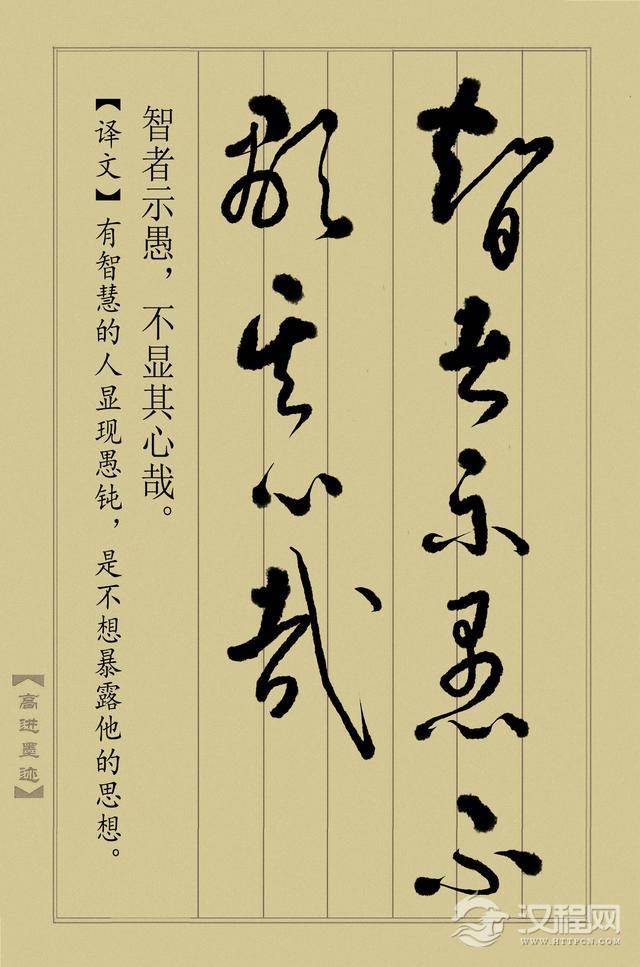 智者示愚不
显其心哉
智者示愚，不显其心哉。
【译文】有智慧的人显现愚钝，是不想暴露他的思想。
【高进墨迹】
汉程网
WWW.HTTPCN.COM